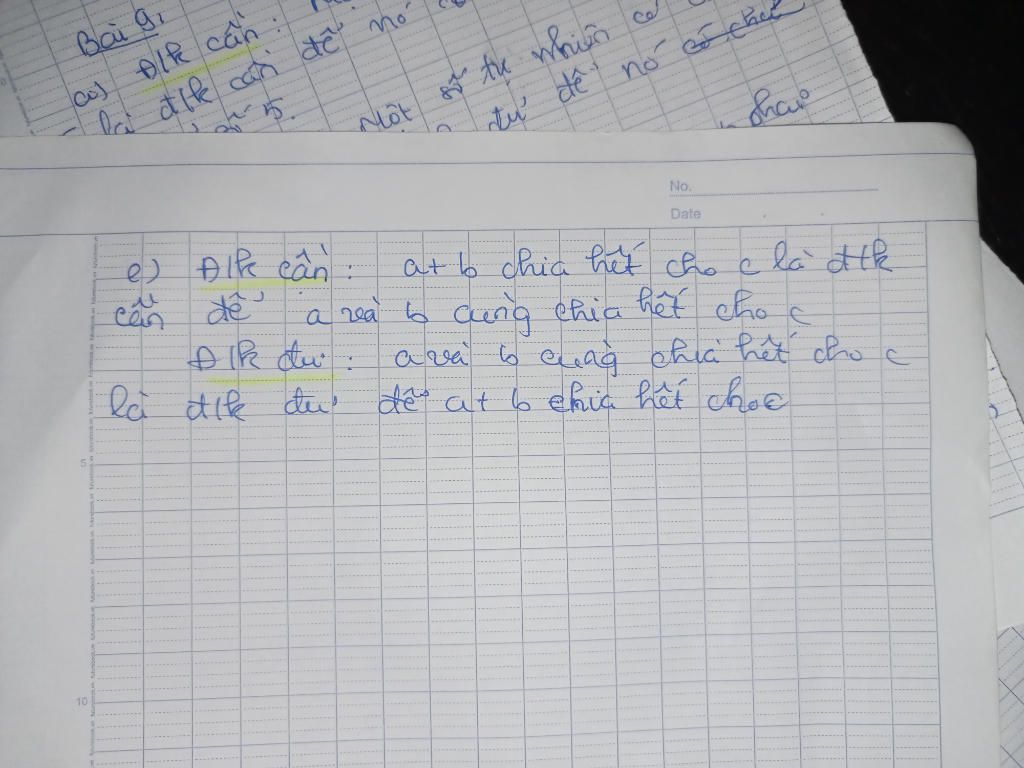 Bài 9,
a) Đ/k cần:
là đ/k cần để nó
số 5. Một số tự nhiên có
đủ để nó có chữ
No.
Date
e) Đ/k cần: a+b chia hết cho c là đ/k
cần để a và b cùng chia hết cho c
Đ/k đủ: a và b cùng chia hết cho c
là đ/k đủ để a+b chia hết cho c
5
10